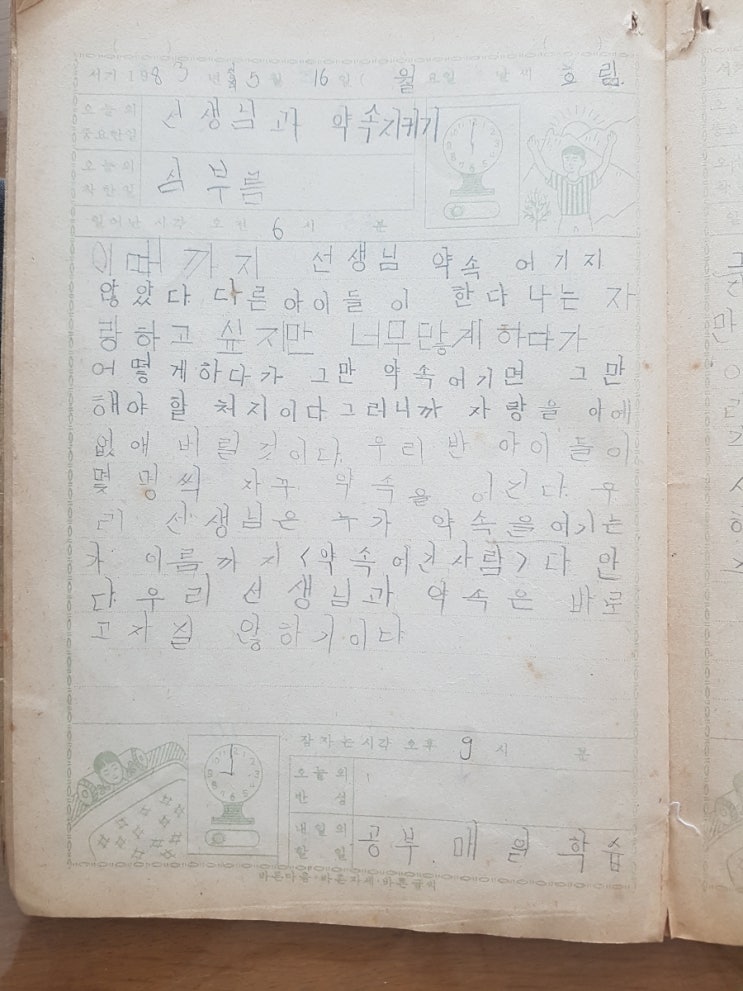 서기 198 년 5월 16일 (월요일 날씨 흐림.
오늘의 중요한일 선생님과 약속지키기
오늘의 착한일 심부름
일어난 시각 오전 6시 분
이때까지 선생님 약속 어기지
않았다 다른아이들이 한다 나는 자
랑하고 싶지만 너무많게 하다가
어떻게하다가 그만 약속어기면 그만
해야 할 처지이다그러니까 자랑을 아에
없애 버릴 것이다. 우리 반 아이들이
몇 명씩 자꾸 약속을 어긴다. 우
리 선생님은 누가 약속을어기는
가 이름까지 <약속어긴사람>다 안
다. 우리 선생님과 약속은 바로
고자질 않하기이다
잠자는시각 오후 9시 분
오늘의 반성
내일의 할일 공부. 매일 학습
바른마음·바른자세·바른글씨